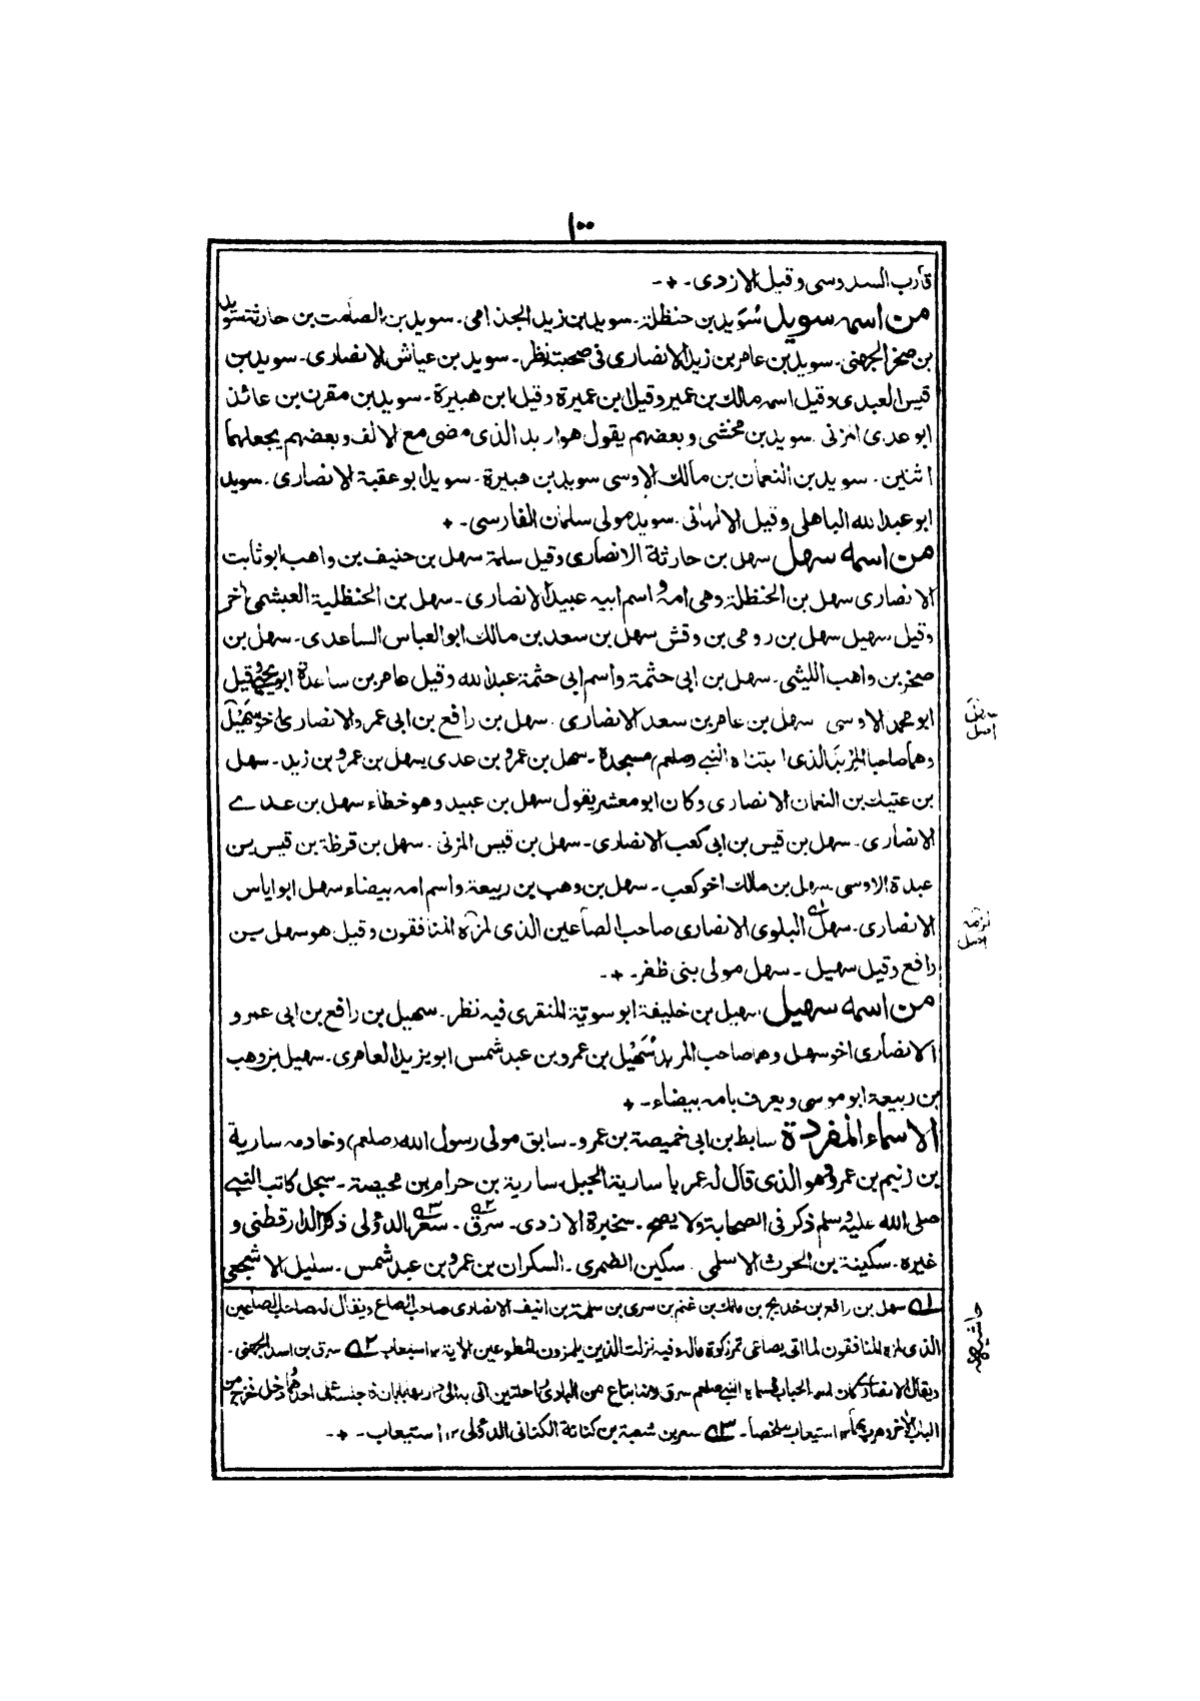 ١٠٠
قارب السدوسی وقیل الازدی۔ + ۔
من اسمه سويد سُوَيد بن حنظلة۔ سويد بن زيد الجذامى۔ سويد بن الصامت بن حارثة سويد
بن صخر الجهنى۔ سويد بن عامر بن زيد الانصارى فى صحبته نظر۔ سويد بن عياش الانصارى۔ سويد بن
قيس العبدى وقيل اسمه مالك بن عمير وقيل ابن عميرة وقيل ابن هبيرة۔ سويد بن مقرن بن عائذ
ابو عدى المزنى۔ سويد بن مخشى وبعضهم يقول هو اربد الذى مضى مع الالف وبعضهم يجعلهما
اثنين۔ سويد بن النعمان بن مالك الاوسى سويد بن هبيرة۔ سويد ابو عقبة الانصارى۔ سويد
ابو عبد الله الباهلى وقيل الالهانى۔ سويد مولى سلمان الفارسى۔ +
من اسمه سهل سهل بن حارثة الانصارى وقيل سلمة سهل بن حنيف بن واهب ابو ثابت
الانصارى سهل بن الحنظلة وهى امه واسم ابيه عبيد الانصارى۔ سهل بن الحنظلية العبشمى اخر
وقيل سهيل سهل بن رومى بن وقش سهل بن سعد بن مالك ابو العباس الساعدى۔ سهل بن
صخر بن واهب الليثى۔ سهل بن ابى حثمة واسم ابى حثمة عبد الله وقيل عامر بن ساعدة ابو يحيى وقيل
ابو محمد الاوسى سهل بن عامر بن سعد الانصارى۔ سهل بن رافع بن ابى عمرو الانصارى اخو سُهَيْل
وهما صاحبا المِرْبَد الذى ابتناه النبى (صلعم) مسجدة۔ سهل بن عمرو بن عدى سهل بن عمرو بن زيد۔ سهل
بن عتيك بن النعمان الانصارى وكان ابو معشر يقول سهل بن عبيد وهو خطاء سهل بن عدے
الانصارى۔ سهل بن قيس بن ابى كعب الانصارى۔ سهل بن قيس المزنى۔ سهل بن قرظة بن قيس بن
عبدة الاوسى سهل بن مالك اخو كعب۔ سهل بن وهب بن ربيعة واسم امه بيضاء سهل ابو اياس
الانصارى۔ سهل ١ البلوى الانصارى صاحب الصاعين الذى لمزه المنافقون وقيل هو سهل بن
رافع وقيل سهيل۔ سهل مولى بنى ظفر۔ + ۔
من اسمه سهيل سهيل بن خليفة ابو سوية المنقرى فيه نظر۔ سهيل بن رافع بن ابى عمرو
الانصارى اخو سهل وهما صاحب المربد سُهَيْل بن عمرو بن عبد شمس ابو يزيد العامرى۔ سهيل بن وهب
بن ربيعة ابو موسى ويعرف بامه بيضاء۔ +
الاسماء المفردة سابط بن ابى خميصة بن عمرو۔ سابق مولى رسول الله (صلعم) وخادمه سارية
بن زنيم بن عمرو وهو الذى قال له عمر يا سارية الجبل سارية بن حرام بن محيصة۔ سجل كاتب النبے
صلى الله عليه وسلم ذكر فى الصحابة ولا يصح۔ سخبرة الازدى۔ سرق ٢۔ سعر ٣ الدؤلى ذكره الدارقطنى و
غيره۔ سكينة بن الحرث الاسلمى سكين الضمرى۔ السكران بن عمرو بن عبد شمس۔ سليل الاشجعى
سابق اصل
لمزته اصل
حاشيه
١ سهل بن رافع بن خديج بن مالك بن غنم بن سرى بن سلمة بن انيف الانصارى صاحب الصاع ويقال له صاحب الصاعين
الذى لمزه المنافقون لما اتى بصاعى تمر زكوة ماله وفيه نزلت الذين يلمزون المطوعين الاية ١٢ استيعاب ٢ سرق بن اسد الجهنى۔
ويقال الانصارى كان اسمه الحباب فسماه النبى صلعم سرق
الباب الاخر وهرب بهما ١٢ استيعاب ملخصاً۔ ٣ سعر بن شعبة بن كنانة الكنانى الدؤلى ١٢ استيعاب۔ + ۔